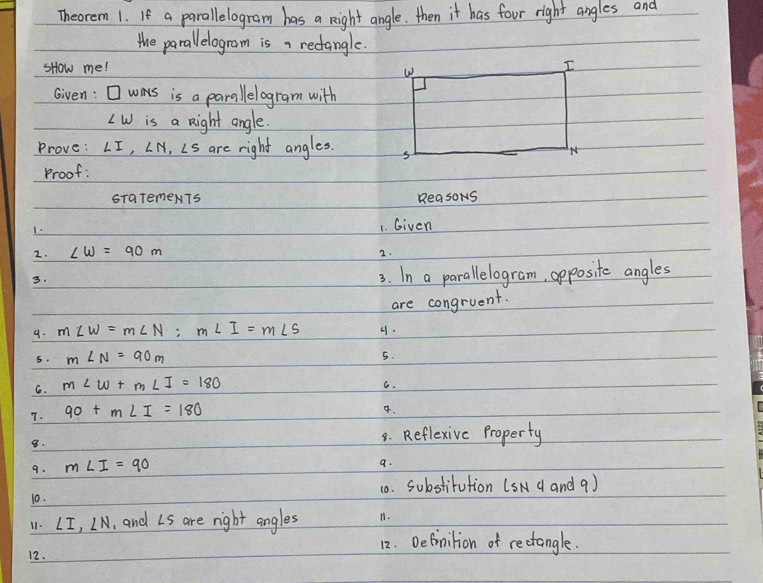 Theorem 1. If a parallelogram has a Right angle, then it has four right angles and
the parallelogram is a rectangle.
SHOW me!
W I
Given: □ WINS is a parallelogram with
∠W is a Right angle.
Prove: ∠I, ∠N, ∠S are right angles.
S N
Proof:
STATEMENTS REASONS
1. 1. Given
2. ∠W = 90 m 2.
3. 3. In a parallelogram, opposite angles
are congruent.
4. m∠W = m∠N ; m∠I = m∠S 4.
5. m∠N = 90m 5.
6. m∠W + m∠I = 180 6.
7. 90 + m∠I = 180 7.
8. 8. Reflexive Property
9. m∠I = 90 9.
10. 10. Substitution (SN 4 and 9)
11. ∠I, ∠N, and ∠S are right angles 11.
12. 12. Definition of rectangle.